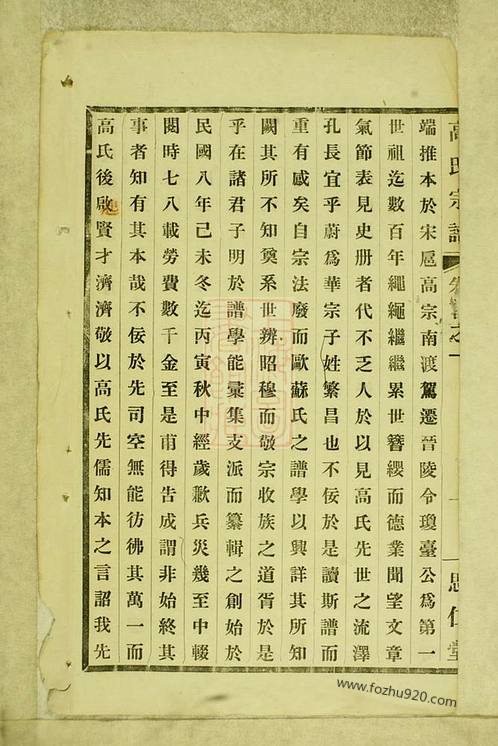 高氏宗譜 卷首之一 一 思仁堂
端推本於宋扈高宗南渡駕遷晉陵令瓊臺公爲第一
世祖迄數百年繩繩繼繼累世簪纓而德業聞望文章
氣節表見史册者代不乏人於以見高氏先世之流澤
孔長宜乎蔚爲華宗子姓繁昌也不佞於是讀斯譜而
重有感矣自宗法廢而歐蘇氏之譜學以興詳其所知
闕其所不知奠系世辨昭穆而敬宗收族之道胥於是
乎在諸君子明於譜學能彙集支派而纂輯之創始於
民國八年己未冬迄丙寅秋中經歲歉兵災幾至中輟
閱時七八載勞費數千金至是甫得告成謂非始終其
事者知有其本哉不佞於先司空無能彷彿其萬一而
高氏後啟賢才濟濟敬以高氏先儒知本之言詔我先
www.fozhu920.com